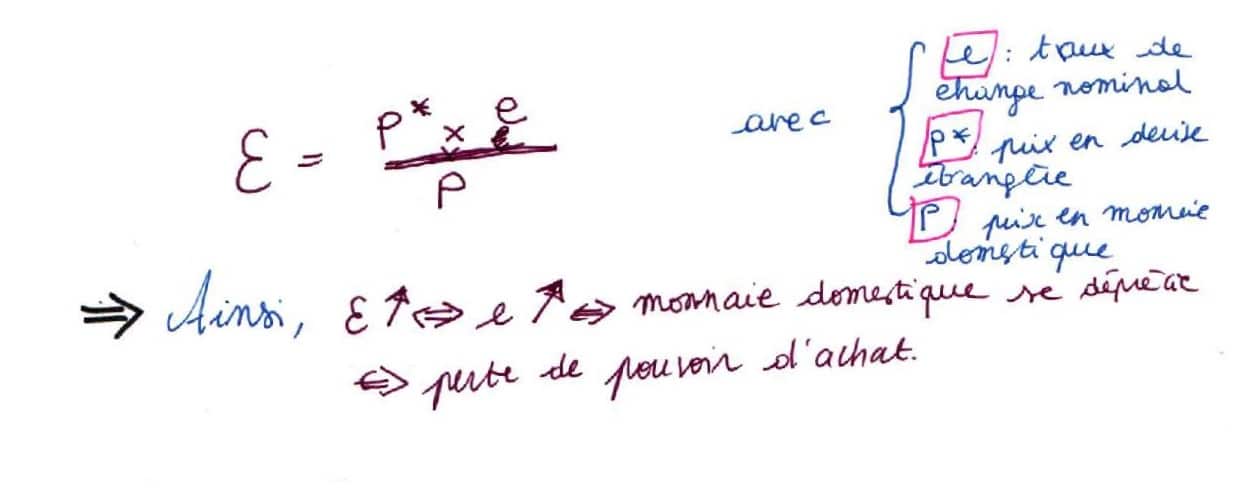 ℰ = P* × e / P
avec
e : taux de
change nominal
P* : prix en devise
étrangère
P prix en monnaie
domestique
⇒ Ainsi, ℰ ↑ ⇔ e ↑ ⇔ monnaie domestique se déprécie
⇔ perte de pouvoir d'achat.